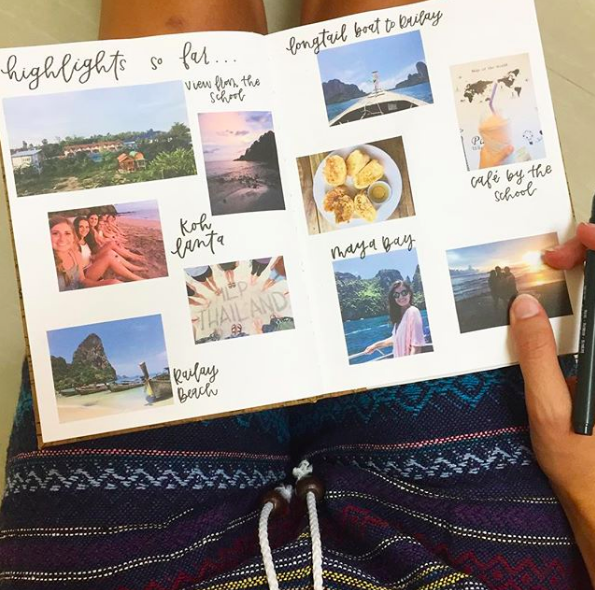 highlights so far...
view from the
school
Koh
lanta
HLP
THAILAND
Railay
Beach
longtail boat to Railay
café by the
school
maya bay